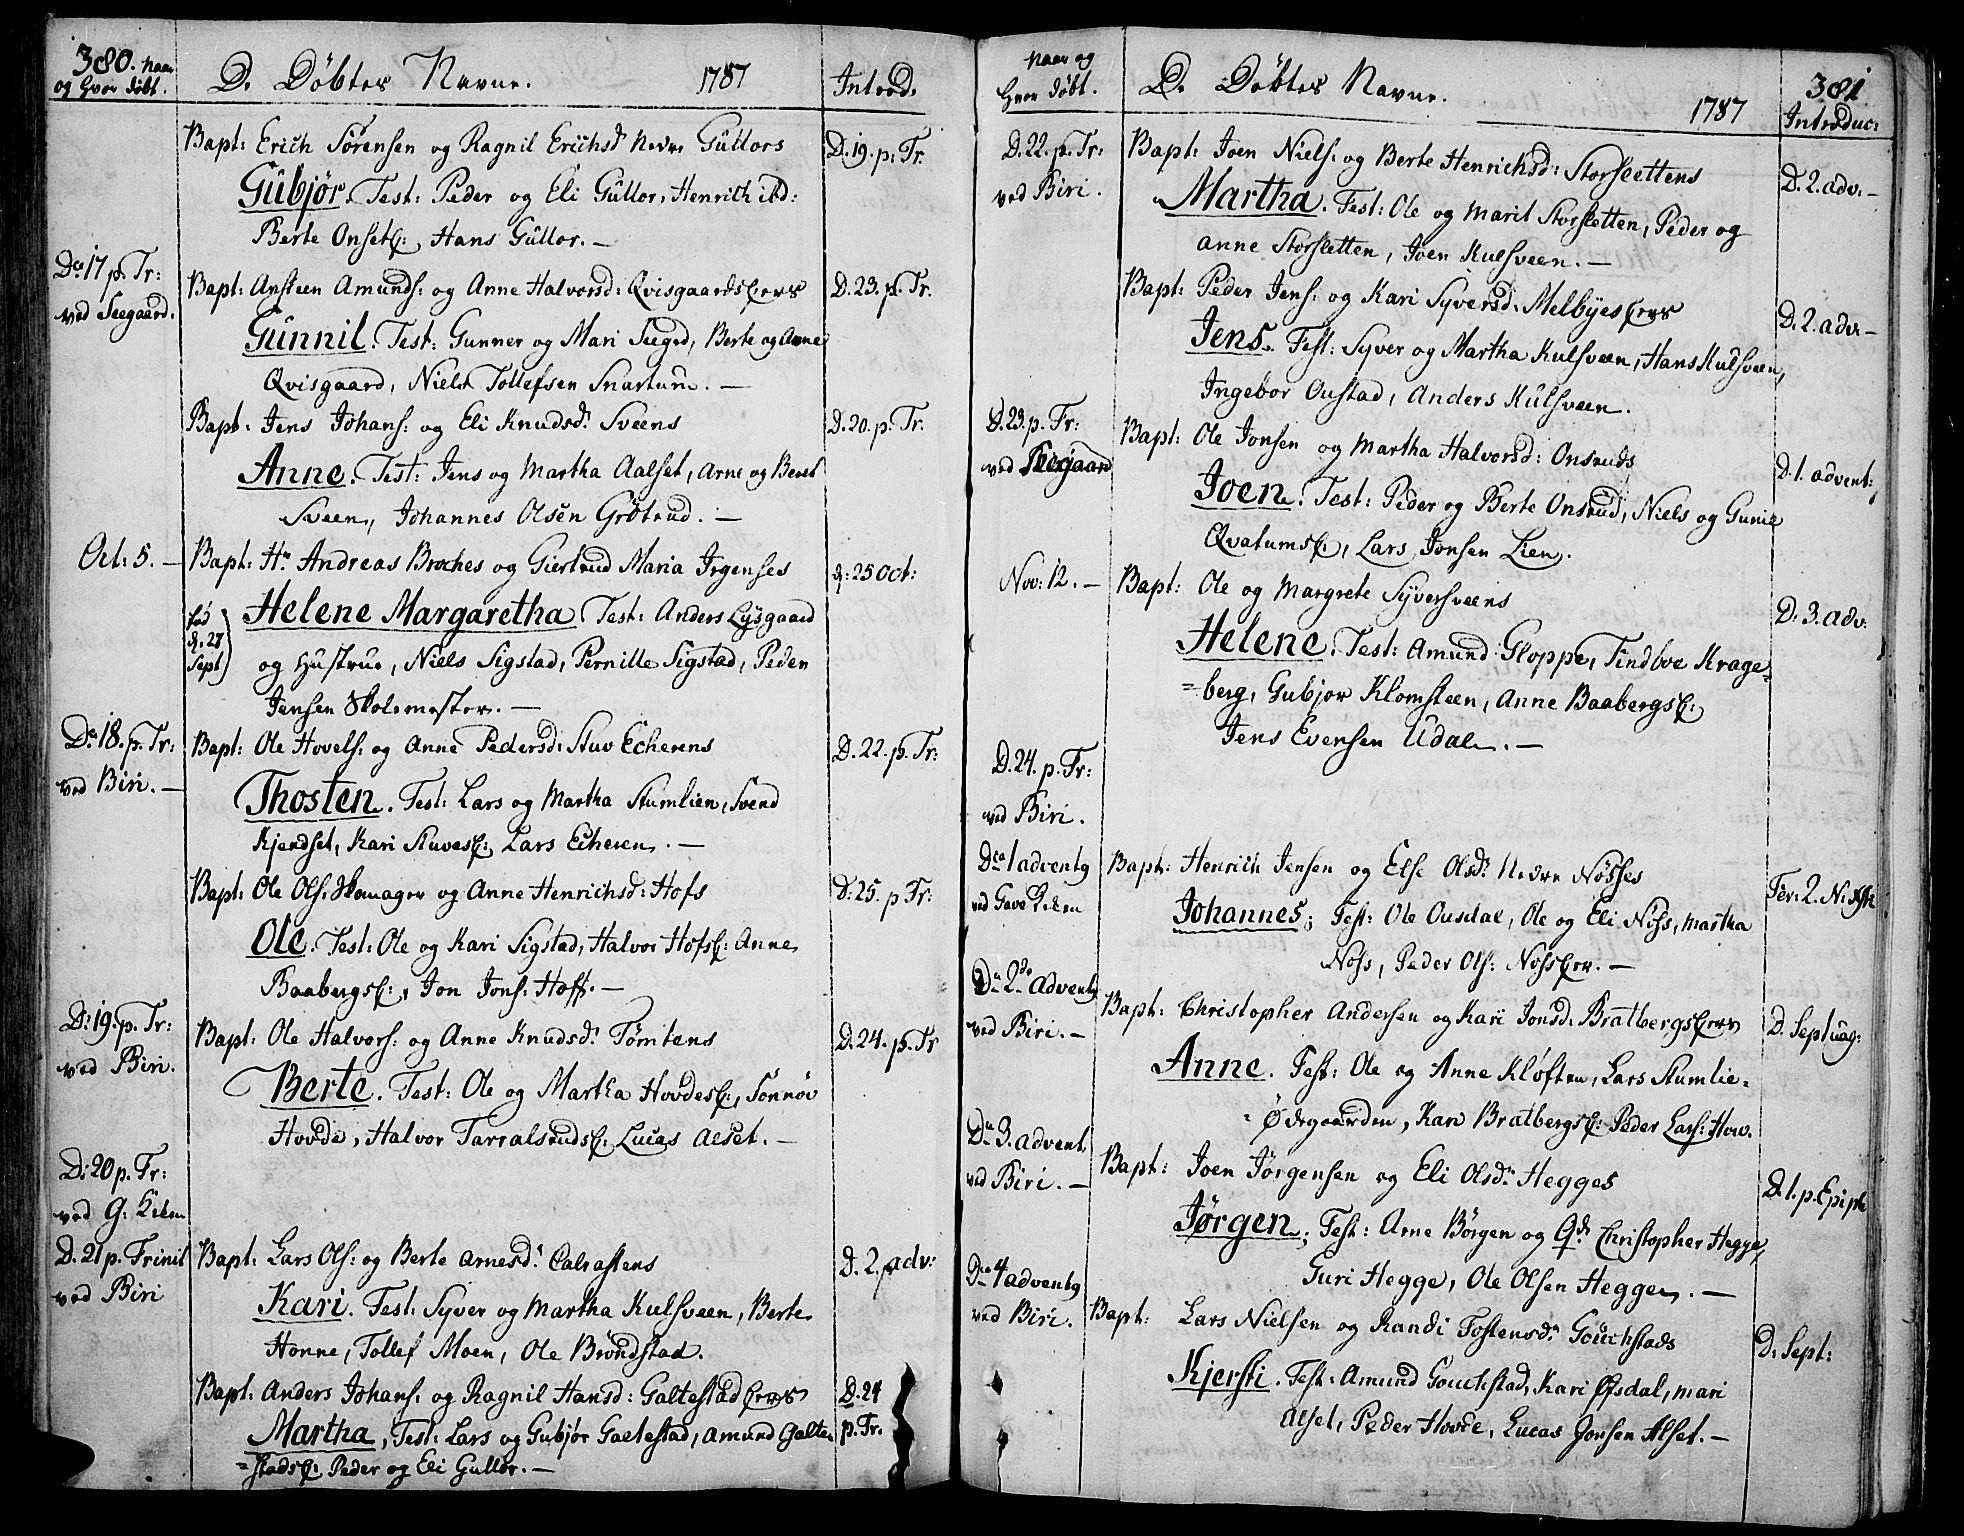 380. Naar
og hvor døbt.
D. Døbtes Navne. 1787
Introd.
Bapt: Erich Sørensen og Ragnil Erichsd. Nedre Gullors
D. 19. p. Tr.
Gubjør. Test: Peder og Eli Gullor, Henrich ibd:
Berte Onset, Hans Gullor. —
Dca 17 p. Tr:
ved Seegaard.
Bapt: Ansteen Amunds: og Anne Halvorsd: Qvisgaards
D. 23. p. Tr.
Gunnil. Test: Gunner og Mari Seegrd, Berte og Anne
Qvisgaard, Niels Tollefsen Snartum. —
Bapt: Jens Johans: og Eli Knudsd. Sveens
D. 20. p. Tr.
Anne. Test: Jens og Martha Aalset, Arne og Beret
Sveen, Johannes Olsen Grøtrud. —
Oct: 5. —
Bapt: Hr Andreas Broches og Giertrud Maria Irgenses
d: 25 Oct:
fød
d. 27
Sept
Helene Margaretha. Test: Anders Lysgaard
og Hustrue, Niels Sigstad, Pernille Sigstad, Peder
Jensen Skolemester. —
D: 18. p. Tr:
ved Biri. —
Bapt: Ole Hovels: og Anne Pedersd: Stuv Echerens
D. 22. p. Tr:
Thosten. Test: Lars og Martha Stumlien, Svend
Kjendset, Kari Stuves: Lars Echeren. —
Bapt: Ole Ols: Skomager og Anne Henrichsd: Hofs
D: 25. p Tr:
Ole. Test: Ole og Kari Sigstad, Halvor Hofs: Anne
Baabergs:, Jon Jons: Hoff. —
D: 19. p. Tr:
ved Biri.
Bapt: Ole Halvors: og Anne Knudsd. Tømtens
D. 24. p. Tr
Berte. Test: Ole og Martha Hovdes:, Sønnøv
Hovde, Halvor Tarralsruds: Lucas Alset. —
D: 20 p. Tr:
ved G: Kirken
D. 21 p. Trinit
ved Biri
Bapt: Lars Ols: og Berte Arnesd.
D. 2. adv:
Kari. Test: Syver og Martha Kulsveen, Berte
Hønne, Tollef Moen, Ole Brøndstad.
Bapt: Anders Johans: og Ragnil Hansd: Galtestad
D. 24
p. Tr.
Martha, Test: Lars og Gubjør Galtestad, Amund Galte
=stads: Peder og Eli Gullor. —
Naar og
hvor døbt.
D. Døbtes Navne. 1787
381
Introduc:
D. 22. p. Tr:
ved Biri.
Bapt: Joen Niels: og Berte Henrichsd: Storslettens
D. 2. adv: —
Martha. Test: Ole og Marit Storsletten, Peder og
Anne Storsletten, Joen Kulsveen. —
Bapt: Peder Jens: og Kari Syversd. Melbyes
D. 2. adv: —
Jens. Test: Syver og Martha Kulsveen, Hans Kulsveen,
Ingebor Oustad, Anders Kulsveen.
D. 23. p. Tr:
ved Seegaard
Bapt: Ole Jonsen og Martha Halvorsd: Onsruds
D. 1. advent:
Joen. Test: Peder og Berte Onsrud, Niels og Gunil
Qvatums:, Lars Jonsen Lien.
Nov: 12. —
Bapt: Ole og Margrete Syversveens
D. 3. adv:
Helene. Test: Amund Gloppe, Findboe Krage=
=berg, Gubjør Klomsteen, Anne Baabergs:
Jens Evensen Udal. —
D. 24. p. Tr:
ved Biri.
Dca 1 adventg
ved
Bapt: Henrich Jensen og Else Olsd. Nedre Nøsses
Fer: 2. N:
Johannes; Test: Ole Ousdal, Ole og Eli Nøss, Martha
Nøss, Peder Ols: Nøss. —
Dca 2. Adventg
ved Biri. —
Bapt: Christopher Andersen og Kari Jonsd: Bratbergs
D. Septuag:
Anne. Test: Ole og Anne Kløften, Lars Stumlie-
=Ødegaarden, Kari Bratbergs: Peder Lars: Hov.
D. 3. advent.
ved Biri. —
Bapt: Joen Jørgensen og Eli Olsd. Hegges
D. 1. p. Epiph
Jørgen; Test: Arne Børgen og Christopher Hegge,
Guri Hegge, Ole Olsen Heggen. —
Dca 4 adventg
ved Biri.
Bapt: Lars Nielsen og Randi Tostensd. Gouchstads
D. Sept:
Kjersti. Test: Amund Gouchstad, Kari Øfsdal, Mari
Alset, Peder Hovde, Lucas Jonsen Alset. —